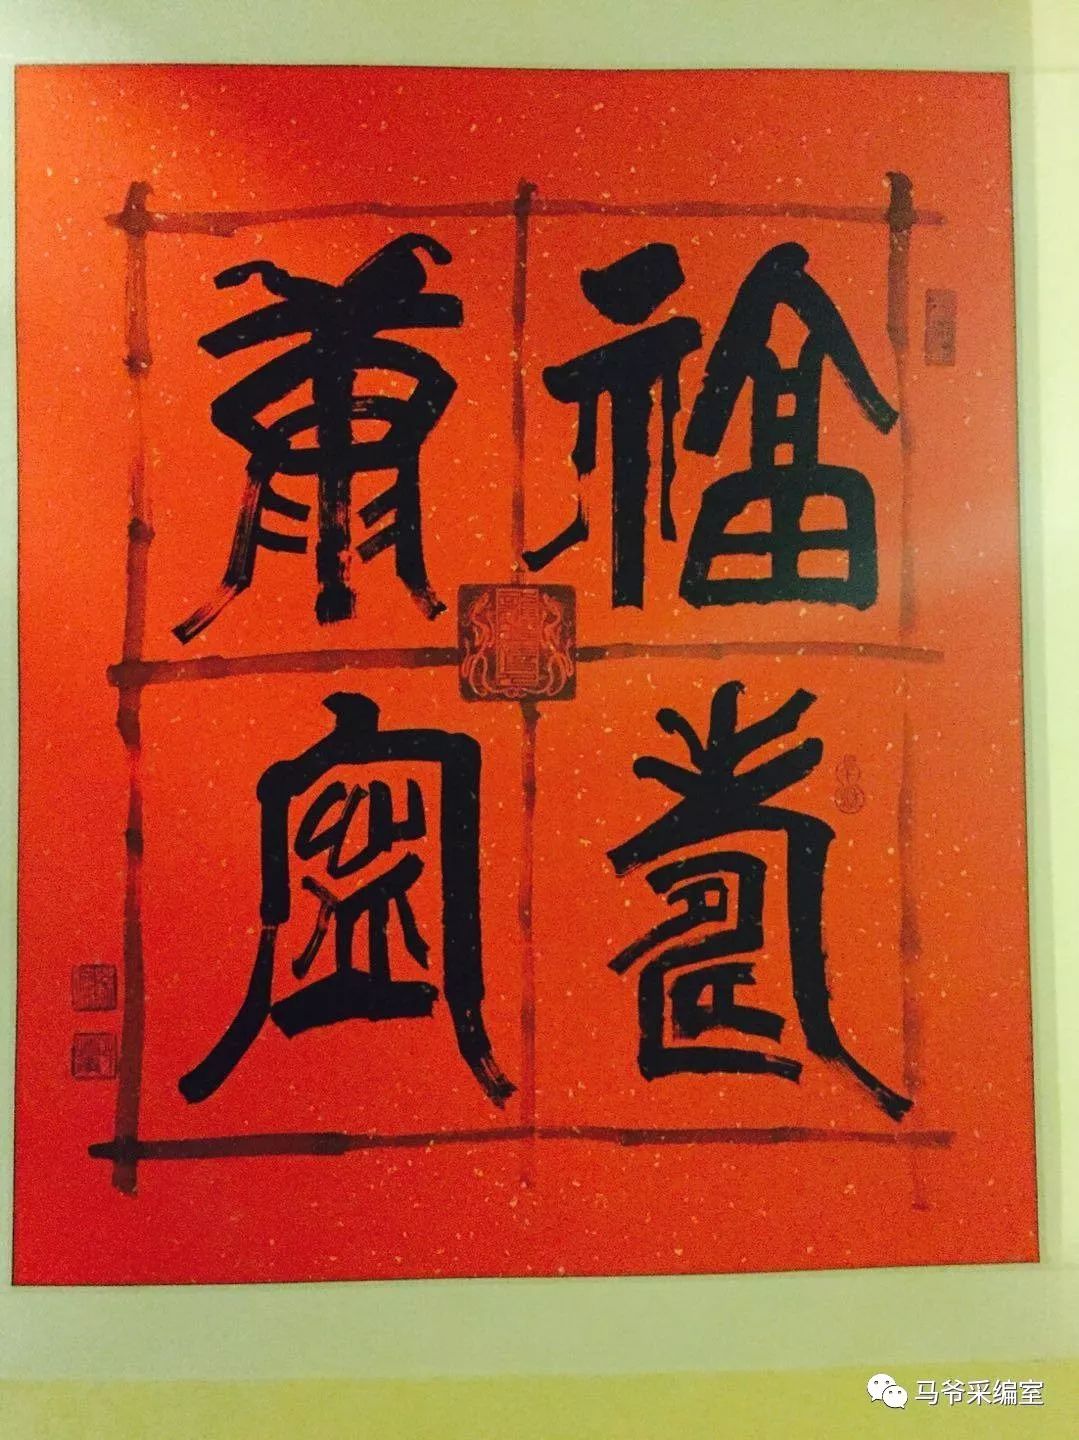 福壽
康寧
马爷采编室